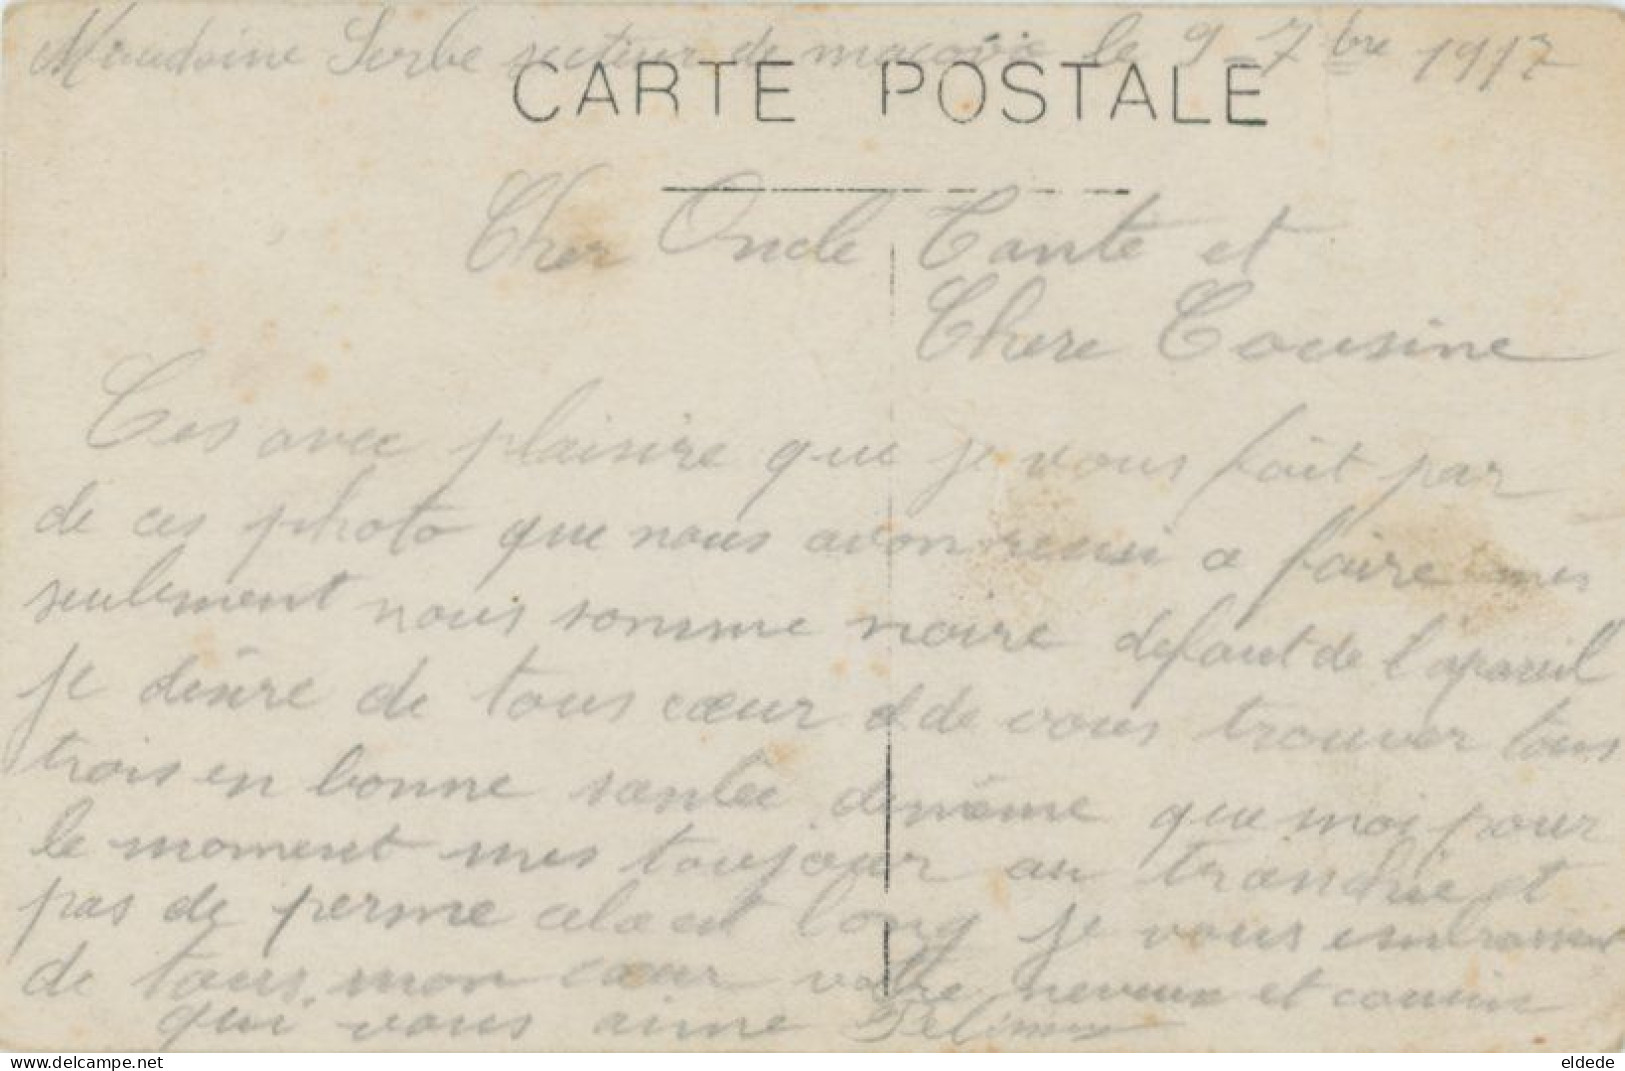 Serbe secteur de le 9 7bre 1917
CARTE POSTALE
Cher Oncle Tante et
Chere Cousine
Ces avec plaisire que je vous fait par
de ces photo que nous avon reussi a faire mes
seulement nous somme noire defaut de l'apareil
je désire de tous cœur de vous trouver tous
trois en bonne santée de même que moi pour
le moment mes toujour au tranchie et
pas de perme cela est long je vous embrassent
de tous mon cœur votre neveux et cousin
qui vous aime
eldede